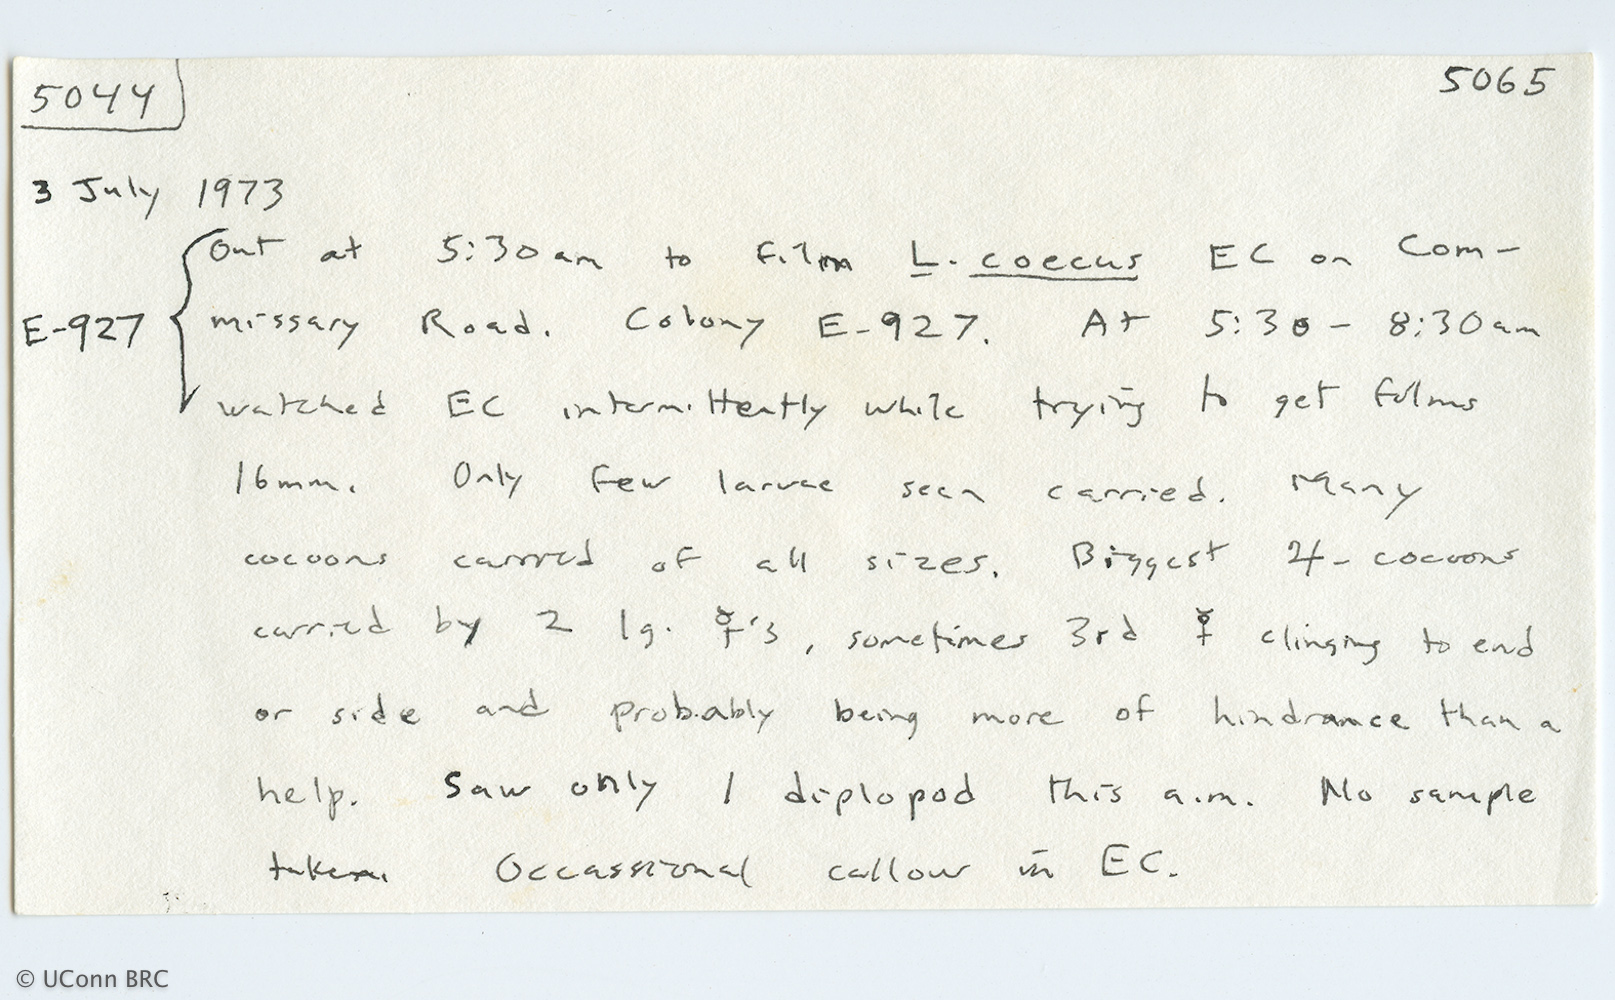 5044
5065
3 July 1973
Out at 5:30am to film L. coecus EC on Com-
E-927 missary Road. Colony E-927. At 5:30 - 8:30am
watched EC intermittently while trying to get films
16mm. Only few larvae seen carried. Many
cocoons carried of all sizes. Biggest 4- cocoons
carried by 2 lg. ☿'s, sometimes 3rd ☿ clinging to end
or side and probably being more of hindrance than a
help. Saw only 1 diplopod this a.m. No sample
taken. Occassional callow in EC.
© UConn BRC